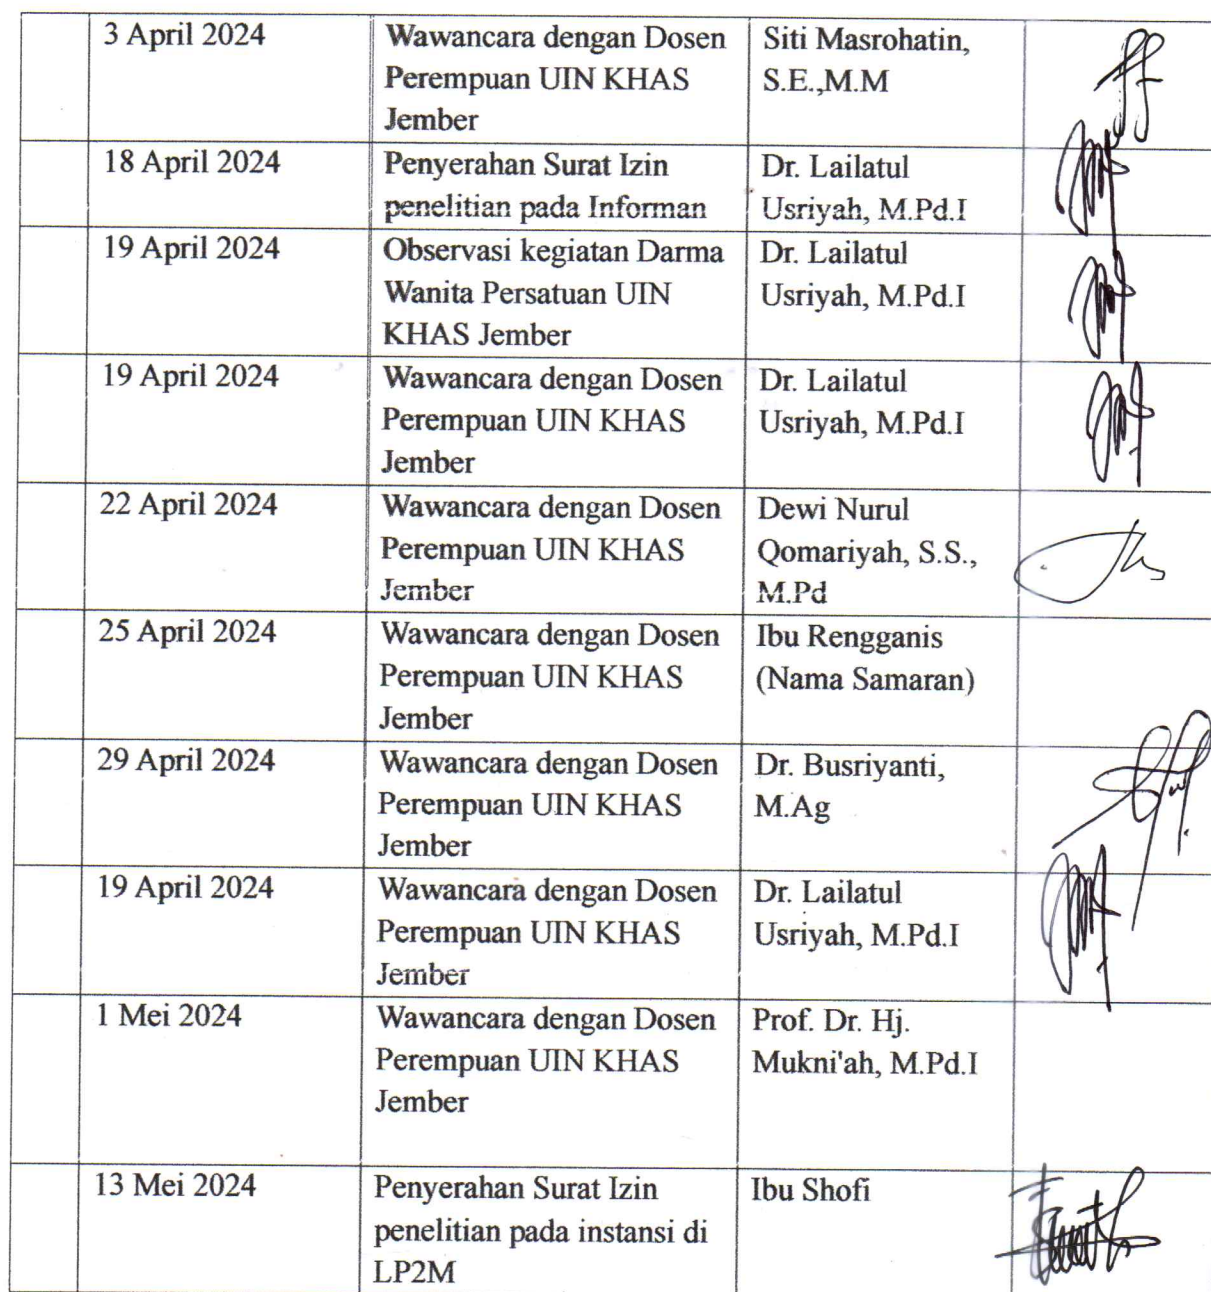 3 April 2024
Wawancara dengan Dosen
Perempuan UIN KHAS
Jember
Siti Masrohatin,
S.E.,M.M
18 April 2024
Penyerahan Surat Izin
penelitian pada Informan
Dr. Lailatul
Usriyah, M.Pd.I
19 April 2024
Observasi kegiatan Darma
Wanita Persatuan UIN
KHAS Jember
Dr. Lailatul
Usriyah, M.Pd.I
19 April 2024
Wawancara dengan Dosen
Perempuan UIN KHAS
Jember
Dr. Lailatul
Usriyah, M.Pd.I
22 April 2024
Wawancara dengan Dosen
Perempuan UIN KHAS
Jember
Dewi Nurul
Qomariyah, S.S.,
M.Pd
25 April 2024
Wawancara dengan Dosen
Perempuan UIN KHAS
Jember
Ibu Rengganis
(Nama Samaran)
29 April 2024
Wawancara dengan Dosen
Perempuan UIN KHAS
Jember
Dr. Busriyanti,
M.Ag
19 April 2024
Wawancara dengan Dosen
Perempuan UIN KHAS
Jember
Dr. Lailatul
Usriyah, M.Pd.I
1 Mei 2024
Wawancara dengan Dosen
Perempuan UIN KHAS
Jember
Prof. Dr. Hj.
Mukni'ah, M.Pd.I
13 Mei 2024
Penyerahan Surat Izin
penelitian pada instansi di
LP2M
Ibu Shofi